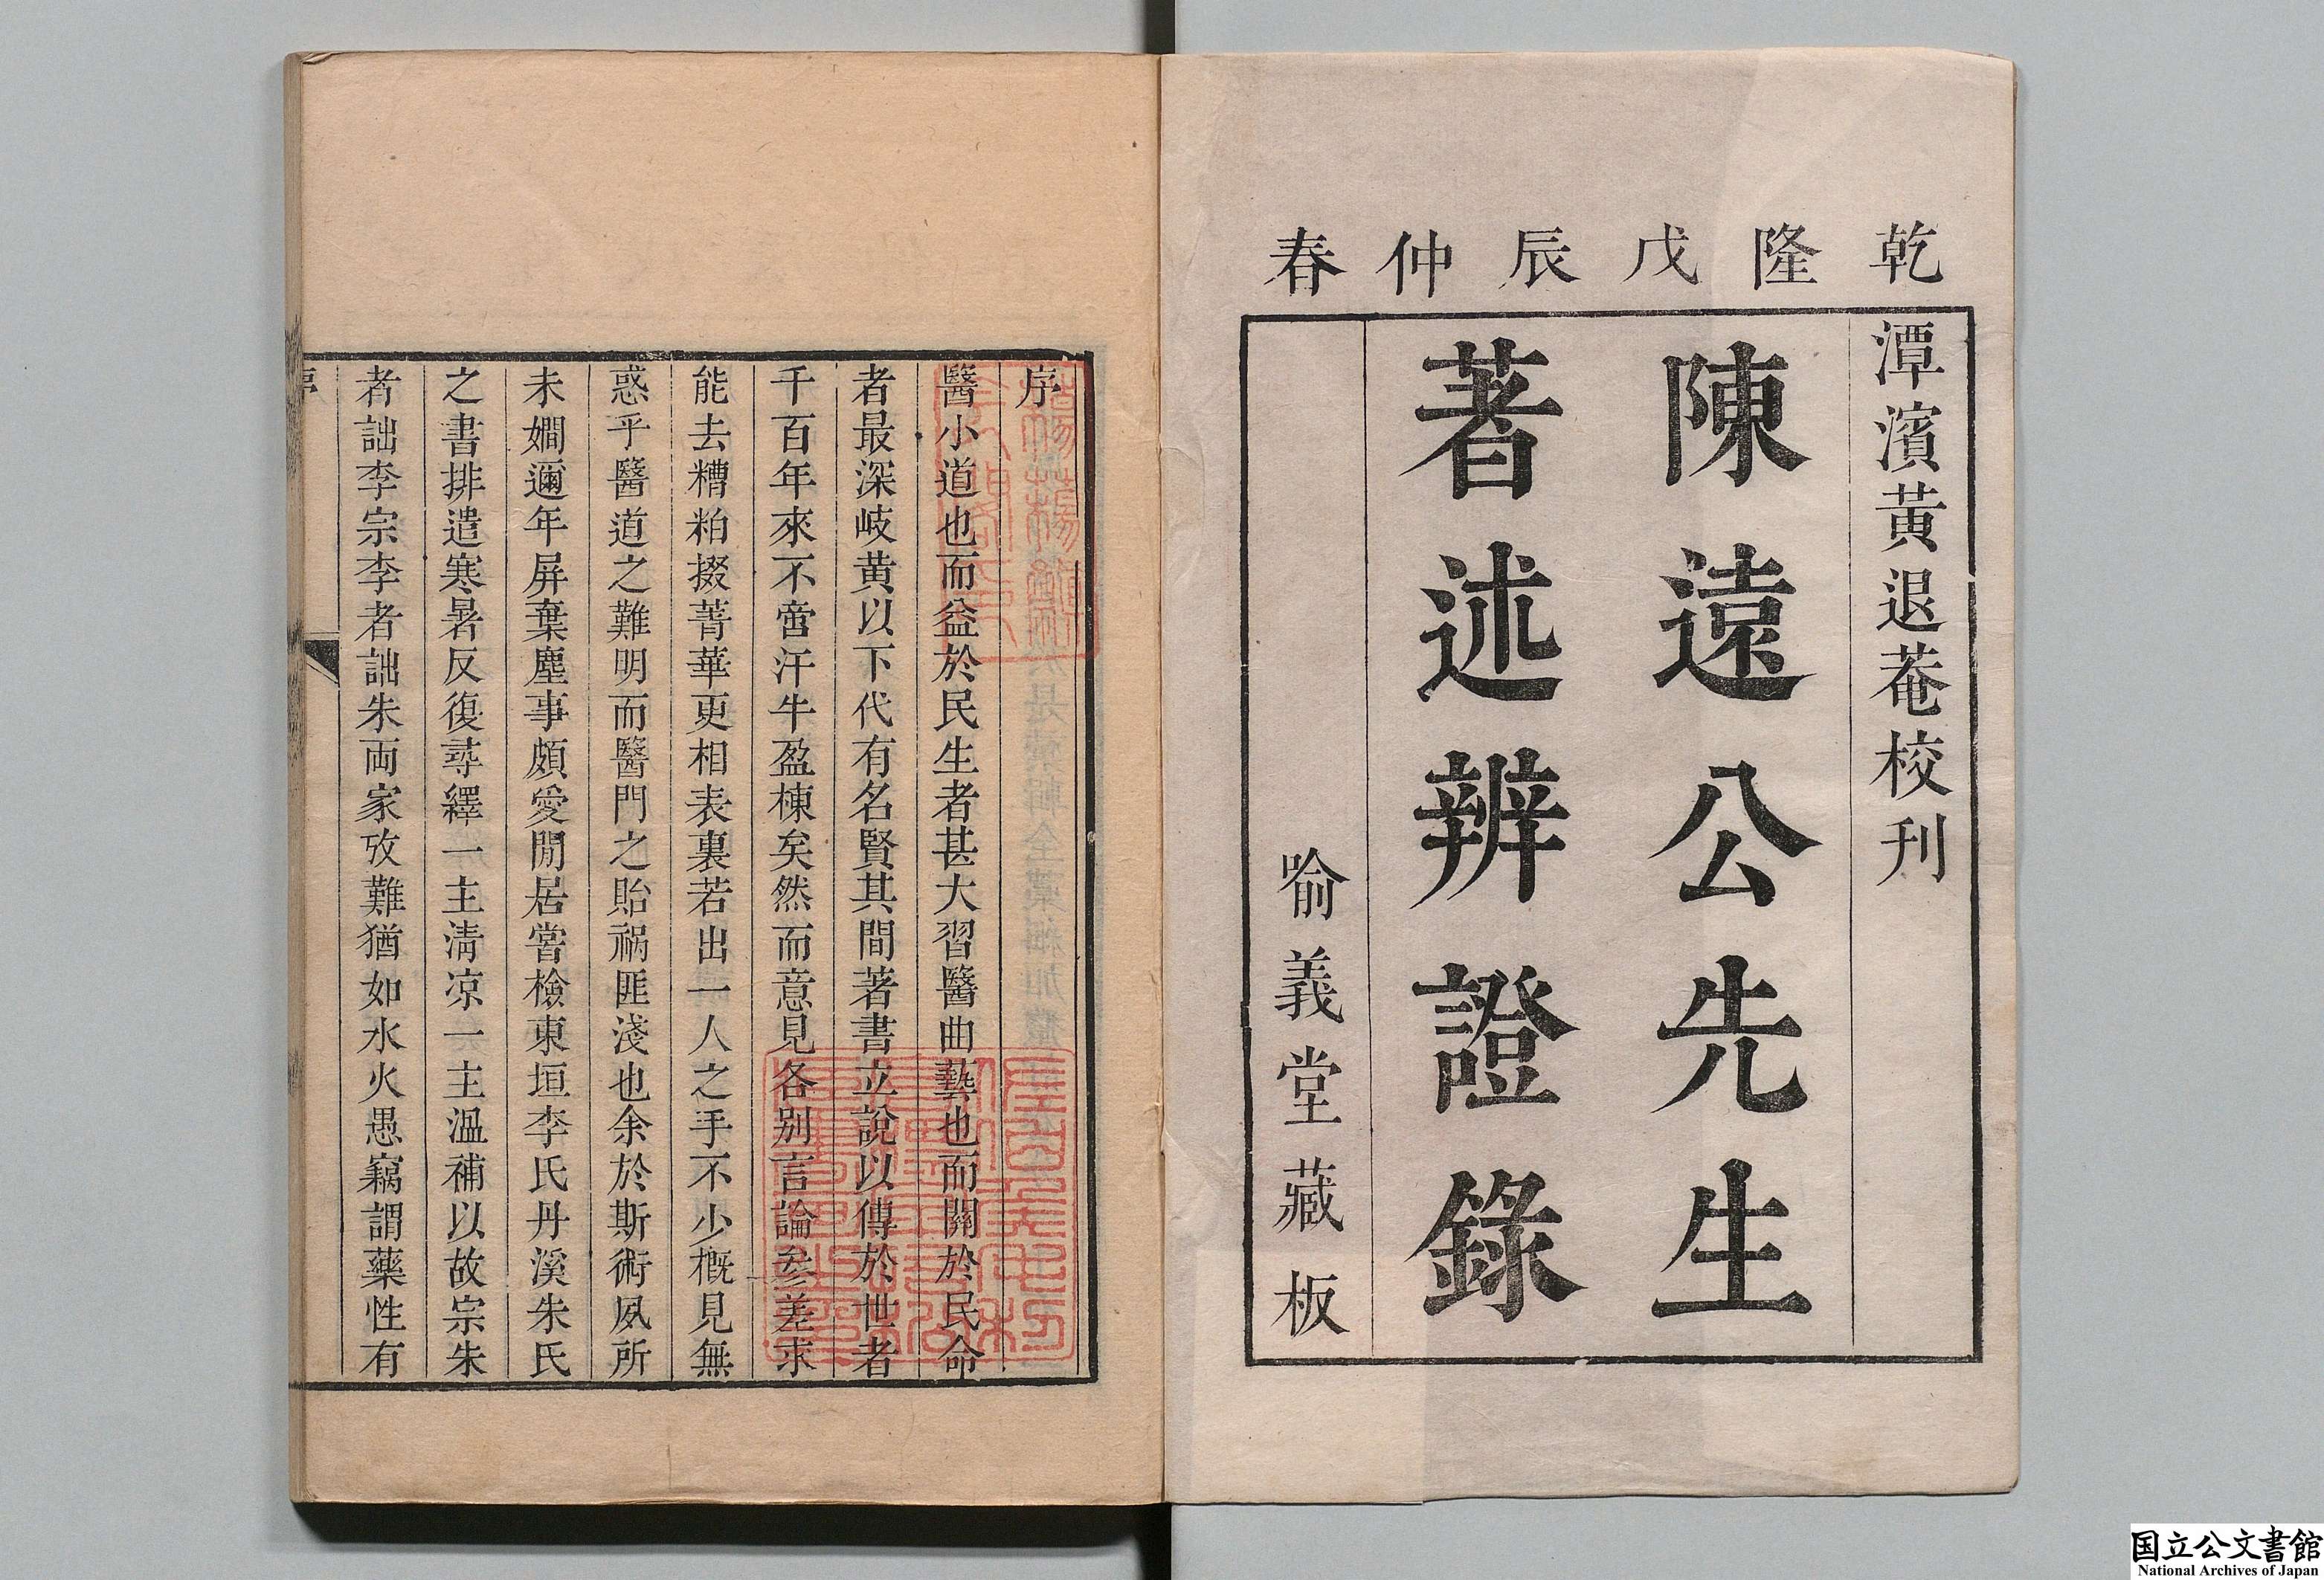 乾隆戊辰仲春
潭濱黃退菴校刊
陳遠公先生
著述辨證錄
喻義堂藏板
序
醫小道也而益於民生者甚大習醫曲藝也而關於民命
者最深岐黃以下代有名賢其間著書立說以傳於世者
千百年來不啻汗牛盈棟矣然而意見各別言論參差求
能去糟粕掇菁華更相表裏若出一人之手不少槪見無
惑乎醫道之難明而醫門之貽禍匪淺也余於斯術夙所
未嫺邇年屏棄塵事頗愛閒居嘗檢東垣李氏丹溪朱氏
之書排遣寒暑反復尋繹一主淸凉一主溫補以故宗朱
者詘李宗李者詘朱兩家攷難猶如水火愚竊謂藥性有
国立公文書館
National Archives of Japan